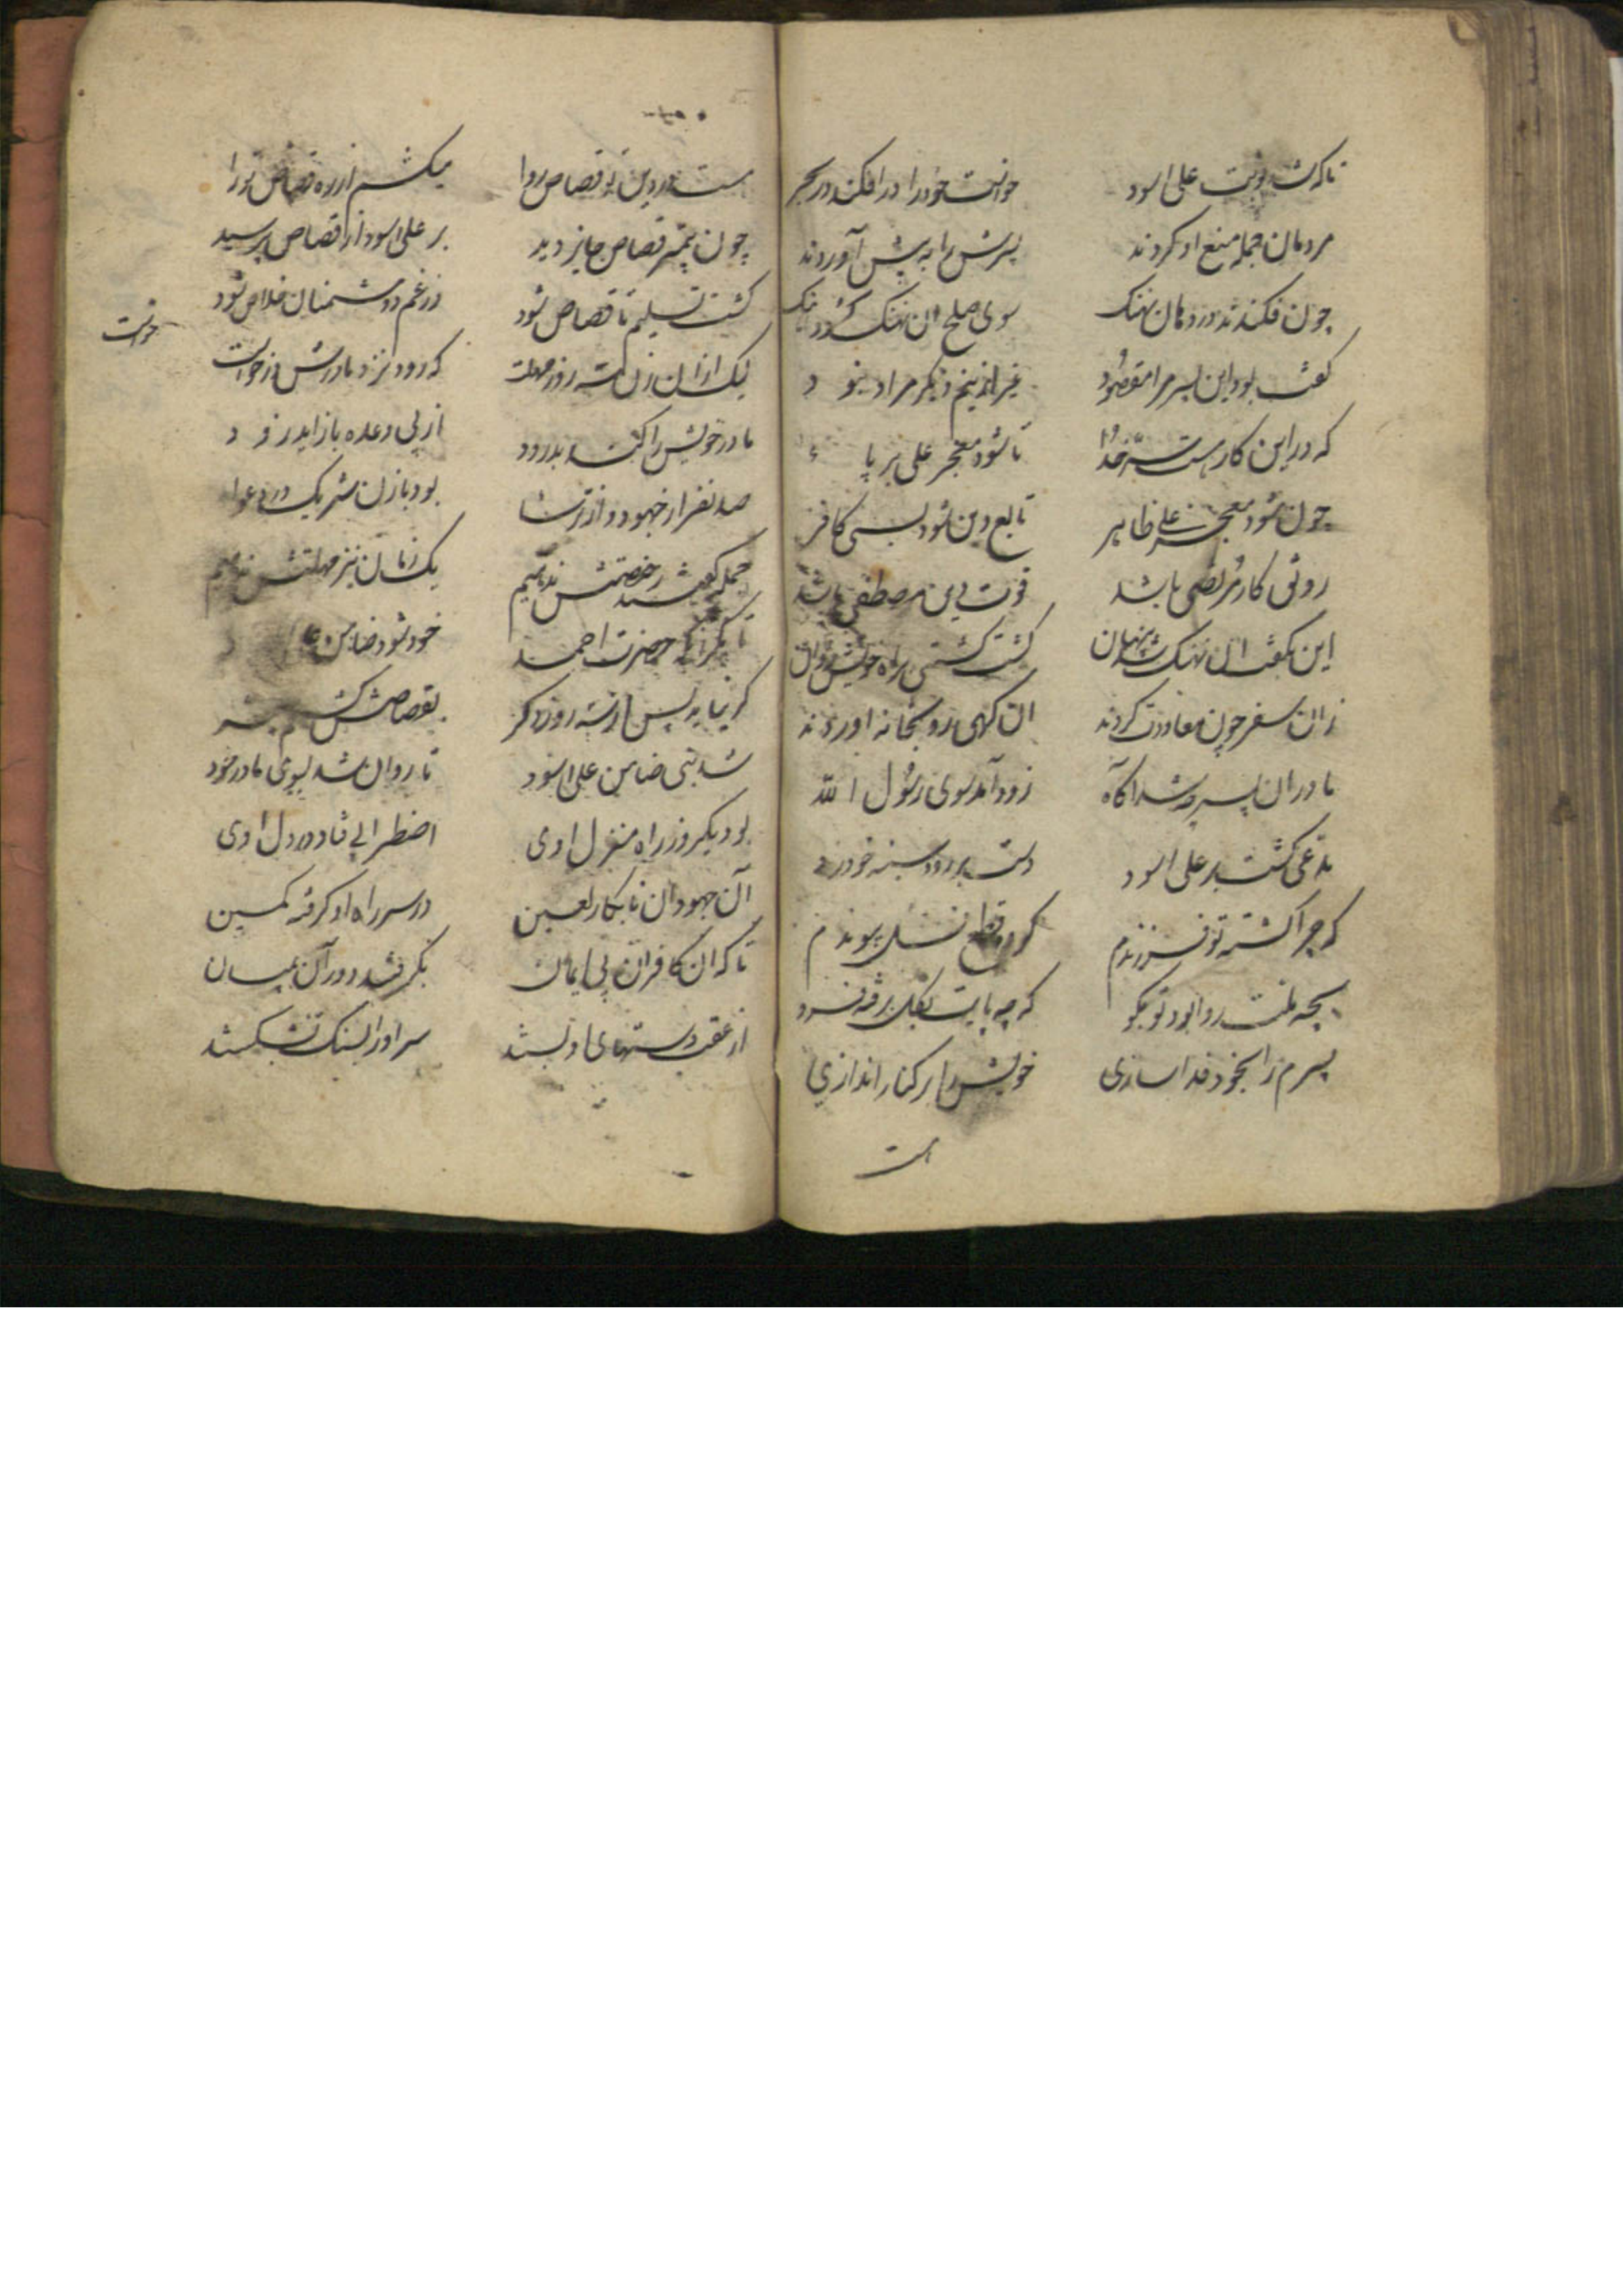 تا که شد نوبت علی اسود خواست خود را در افکند در بحر
مردمان جمله منع او کردند پسرش را به پیش آوردند
چون فکندند در دهان نهنک سوی صلح ان نهنک کرد
گفت بود این پسر مرا مقصود غیر ازینم دیگر مراد نبود
که در این کار هست سر خدا تا شود معجز علی بر پا
چون شود معجز علی ظاهر تابع دین شود بسی کافر
رونق کار مرتضی باشد قوت دین مصطفی باشد
این بگفت ان نهنک شد پنهان گشت کشتی براه خویش روان
زان سفر چون معاودت کردند ان گهی رو بخانه اوردند
مادر ان پسر چه شد اگاه زود آمد سوی رسول الله
مدعی گشت بر علی اسود دست بر رو و سینه خود زد
که چرا کشته تو فرزندم کرده قطع نسل پیوندم
بچه ملت روا بود تو بگو که چه پایت بگل فرو
پسرم را بخود فدا سازی خویش را بر کنار اندازی
هست
هست در دین تو قصاص روا میکشم از ره قصاص تو را
چون پیمبر قصاص جایز دید بر علی اسود از قصاص پرسید
گشت تسلیم تا قصاص شود وز غم دشمنان خلاص شود
لیک از ان زن سه روز مهلت خواست که رود نزد مادرش
مادر خویش را کند بدرود از پی وعده باز اید زود
صد نفر از جهود و از ترسا بود با زن شریک در دعوا
جمله گفتند رخصتش ندهیم یک زمان نیز مهلتش ندهیم
تا مگر انکه حضرت احمد خود شود ضامن
گر نیاید پس از سه روز دگر بقصاصش کشم
شد نبی ضامن علی اسود تا روان شد بسوی مادر خود
بود یکروز راه منزل اوی اضطرابی فتاد در دل اوی
آن جهودان نابکار لعین در سر راه او گرفته کمین
تا که ان کافران بی ایمان بگرفتند دور آن
از عقب دستهای او بستند سر او را بسنک بشکستند